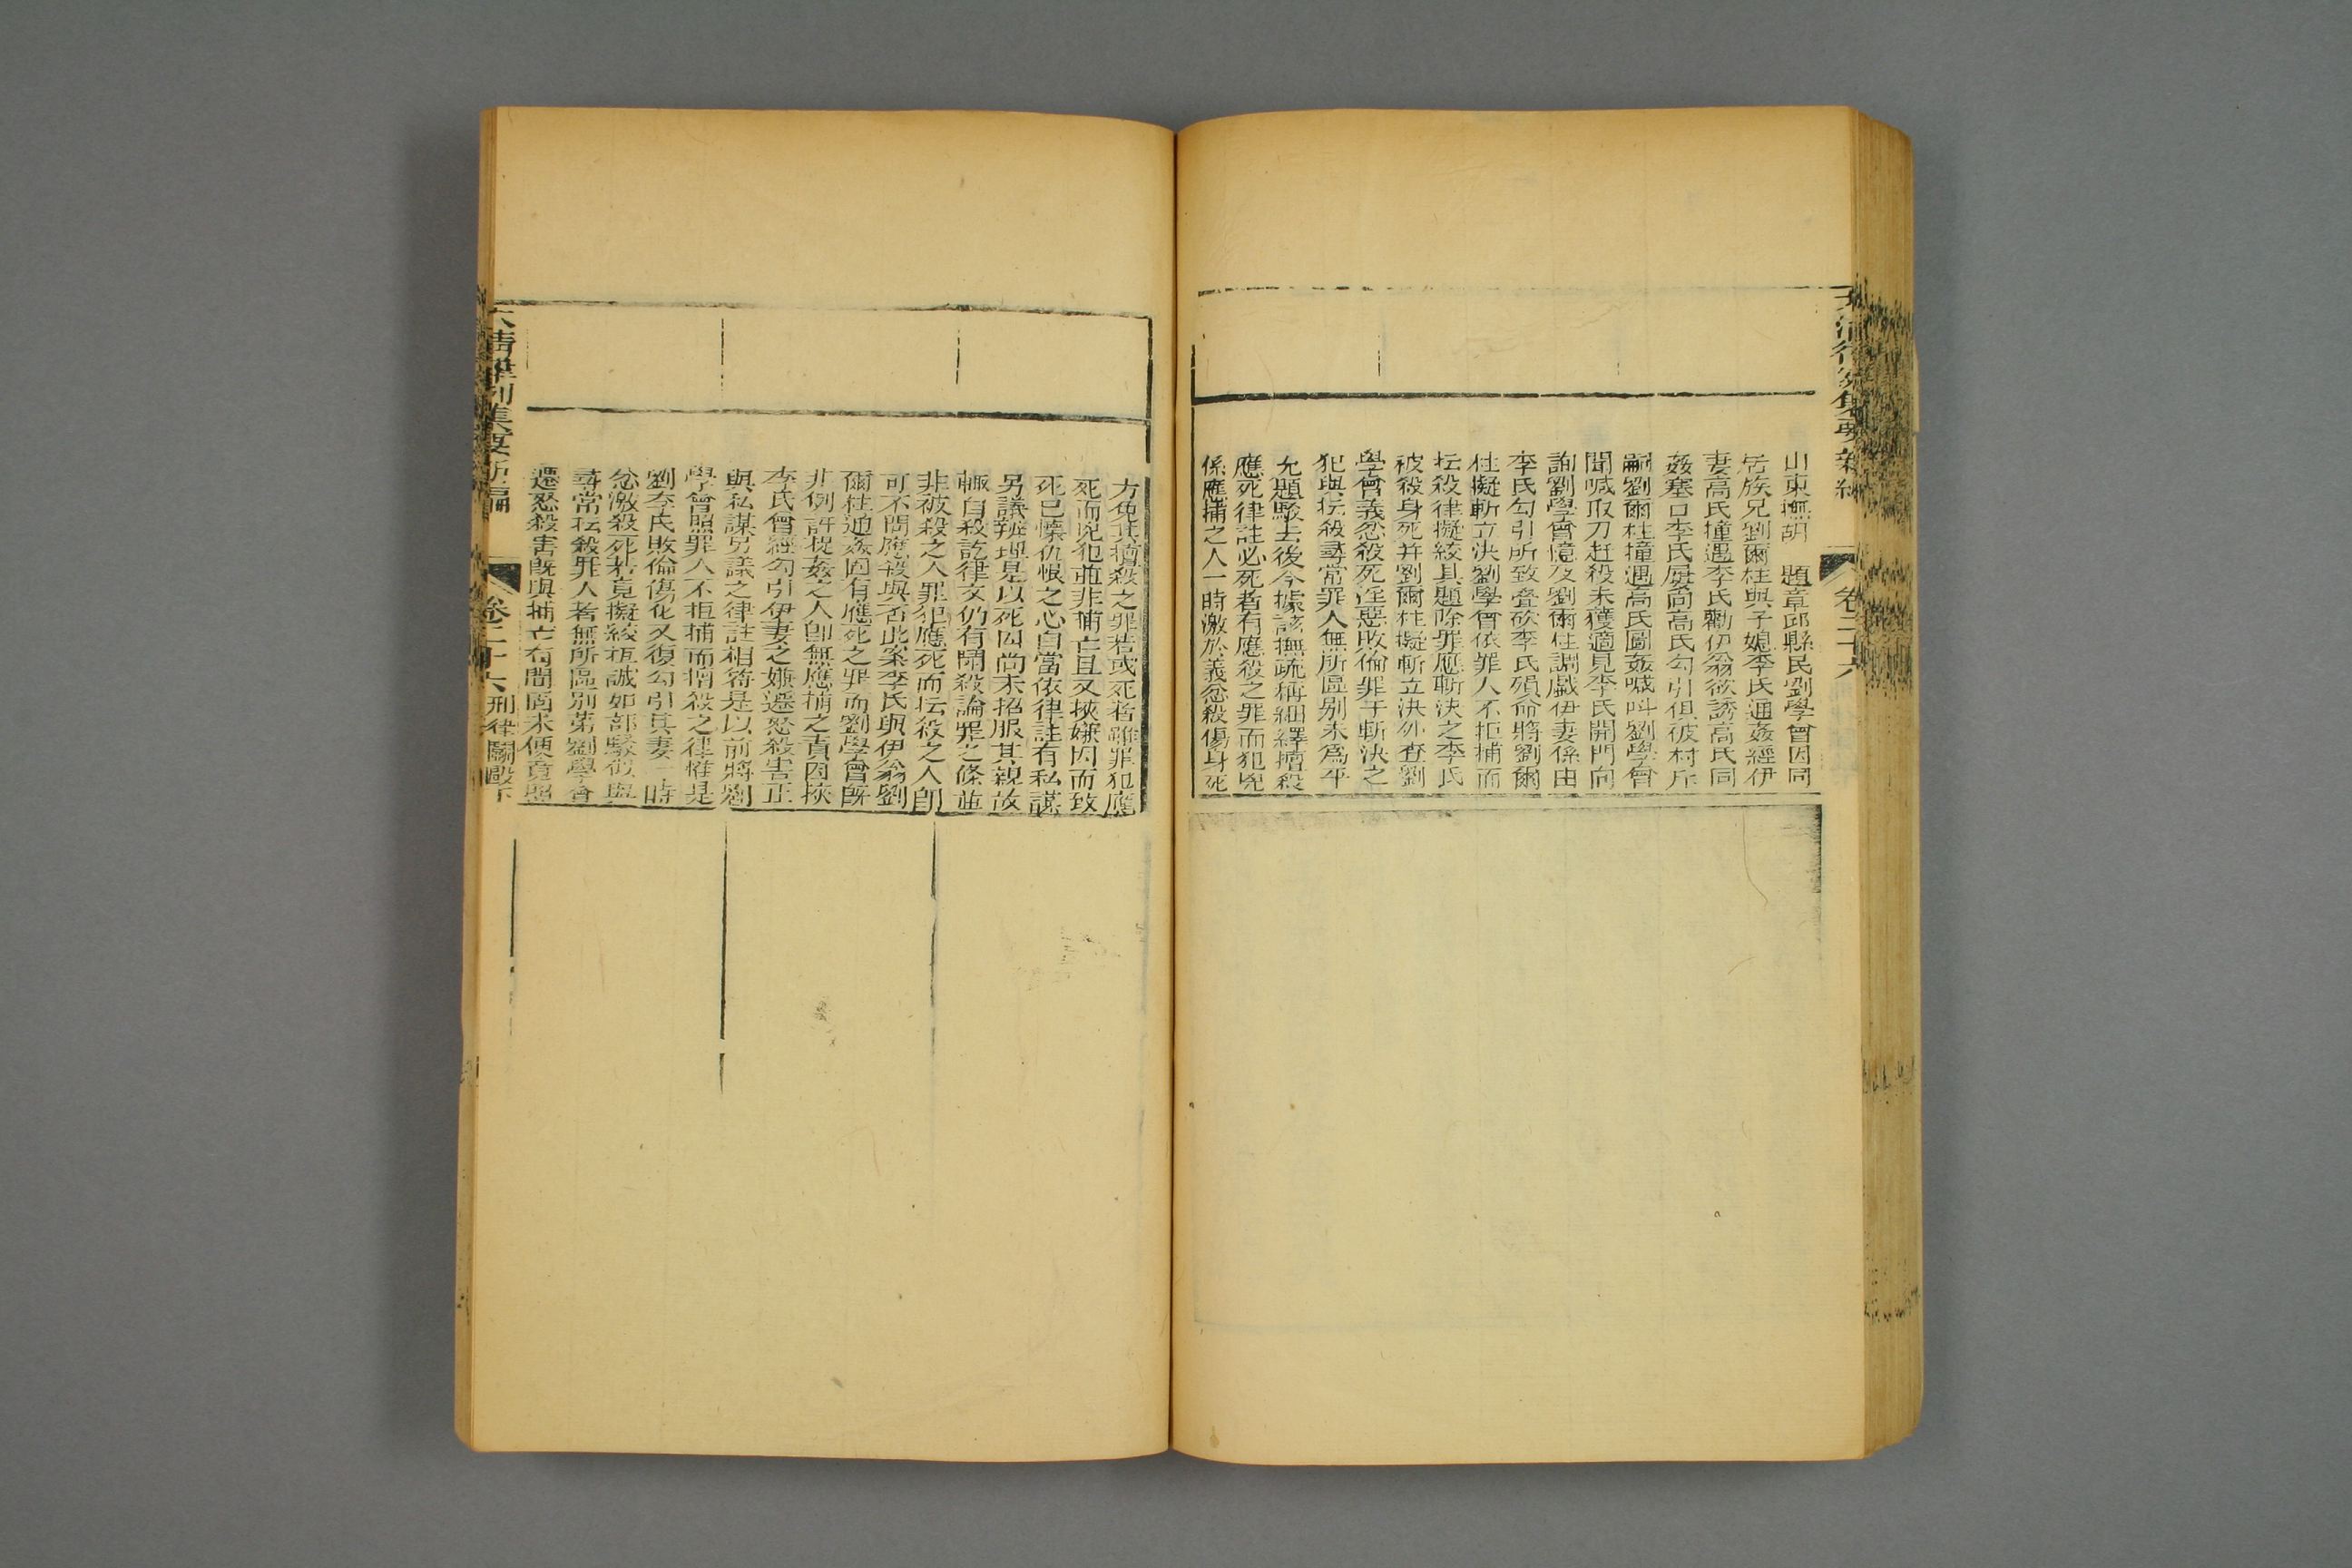 山東撫胡　題章邱縣民劉學曾因同
居族兄劉爾柱與子媳李氏通姦經伊
妻高氏撞遇李氏勸伊翁欲誘高氏同
姦塞口李氏屢向高氏勾引俱被村斥
嗣劉爾柱撞遇高氏圖姦喊叫劉學曾
聞喊取刀赶殺未獲適見李氏開門向
詢劉學曾憶及劉爾柱調戲伊妻係由
李氏勾引所致叠砍李氏殞命將劉爾
柱擬斬立決劉學曾依罪人不拒捕而
抎殺律擬絞具題除罪應斬決之李氏
被殺身死并劉爾柱擬斬立決外查劉
學曾義忿殺死淫惡敗倫罪于斬決之
犯與抎殺尋常罪人無所區别未爲平
允題駁去後今據該撫疏稱細繹擅殺
應死律註必死者有應殺之罪而犯兇
係應捕之人一時激於義忿殺傷身死
方免其擅殺之罪若或死者雖罪犯應
死而兇犯並非捕亡且又挾嫌因而致
死已懷仇恨之心自當依律註有私謀
另議辦理是以死囚尚未招服其親故
輙自殺訖律文仍有鬪殺論罪之條並
非被殺之人罪犯應死而抎殺之人卽
可不問應殺與否此案李氏與伊翁劉
爾柱通姦固有應死之罪而劉學曾旣
非例許捉姦之人卽無應捕之責因挾
李氏曾經勾引伊妻之嫌遷怒殺害正
與私謀另議之律註相符是以前將劉
學曾照罪人不拒捕而擅殺之律惟是
劉李氏敗倫傷化又復勾引其妻一時
忿激殺死若竟擬絞抵誠如部駁似與
尋常抎殺罪人者無所區别第劉學曾
遷怒殺害旣與捕亡有間固未便竟照
大清律例集要新編　卷二十六　刑律鬬毆下